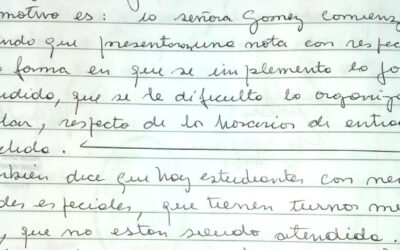 motivo es: la señora Gomez comienz
ndo que presentaron una nota con respec
forma en que se implemento la jo
ndida, que se le dificulta la organiza
lar, respecto de los horarios de entra
lida.
mbién dice que hay estudiantes con nec
des especiales, que tienen turnos me
, que no estan siendo atendida.